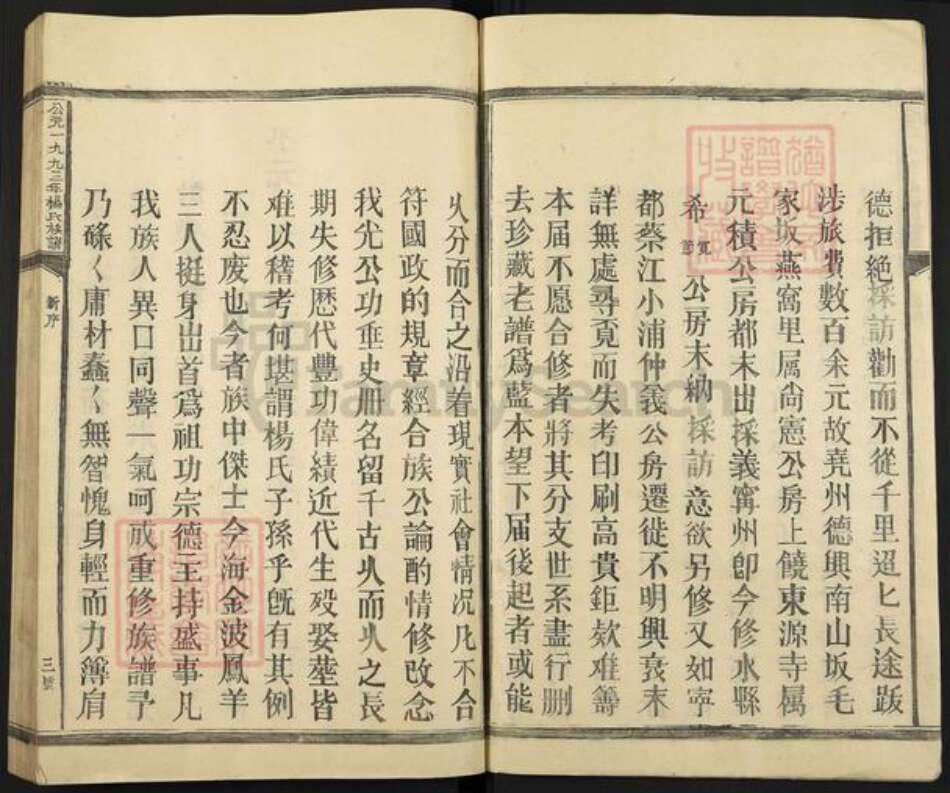 德拒絶採訪勸而不從千里迢匕長途跋
涉旅費數百余元故堯州德興南山坂毛
家坂燕窩里属尙憲公房上饒東源寺属
元積公房都未出採義寗州卽今修水縣
希寬公房未納採訪意欲另修又如寜
都蔡江小浦仲義公房遷徙不明興衰未
詳無處尋覔而失考印刷高貴鉅欵难籌
本届不愿合修者將其分支世系盡行删
去珍藏老譜爲藍本望下届後起者或能
久分而合之沿着現實社會情况凡不合
符國政的規章經合族公論酌情修改念
我光公功垂史册名留千古久而久之長
期失修歷代豐功偉績近代生殁娶塟皆
难以稽考何堪謂楊氏子孫乎旣有其例
不忍废也今者族中傑士今海金波鳳羊
三人挺身出首爲祖功宗德主持盛事凡
我族人異口同聲一氣呵成重修族譜予
乃碌〱庸材蠢〱無智愧身輕而力簿肩
公元一九九三年楊氏族譜
新序
三號
FamilySearch